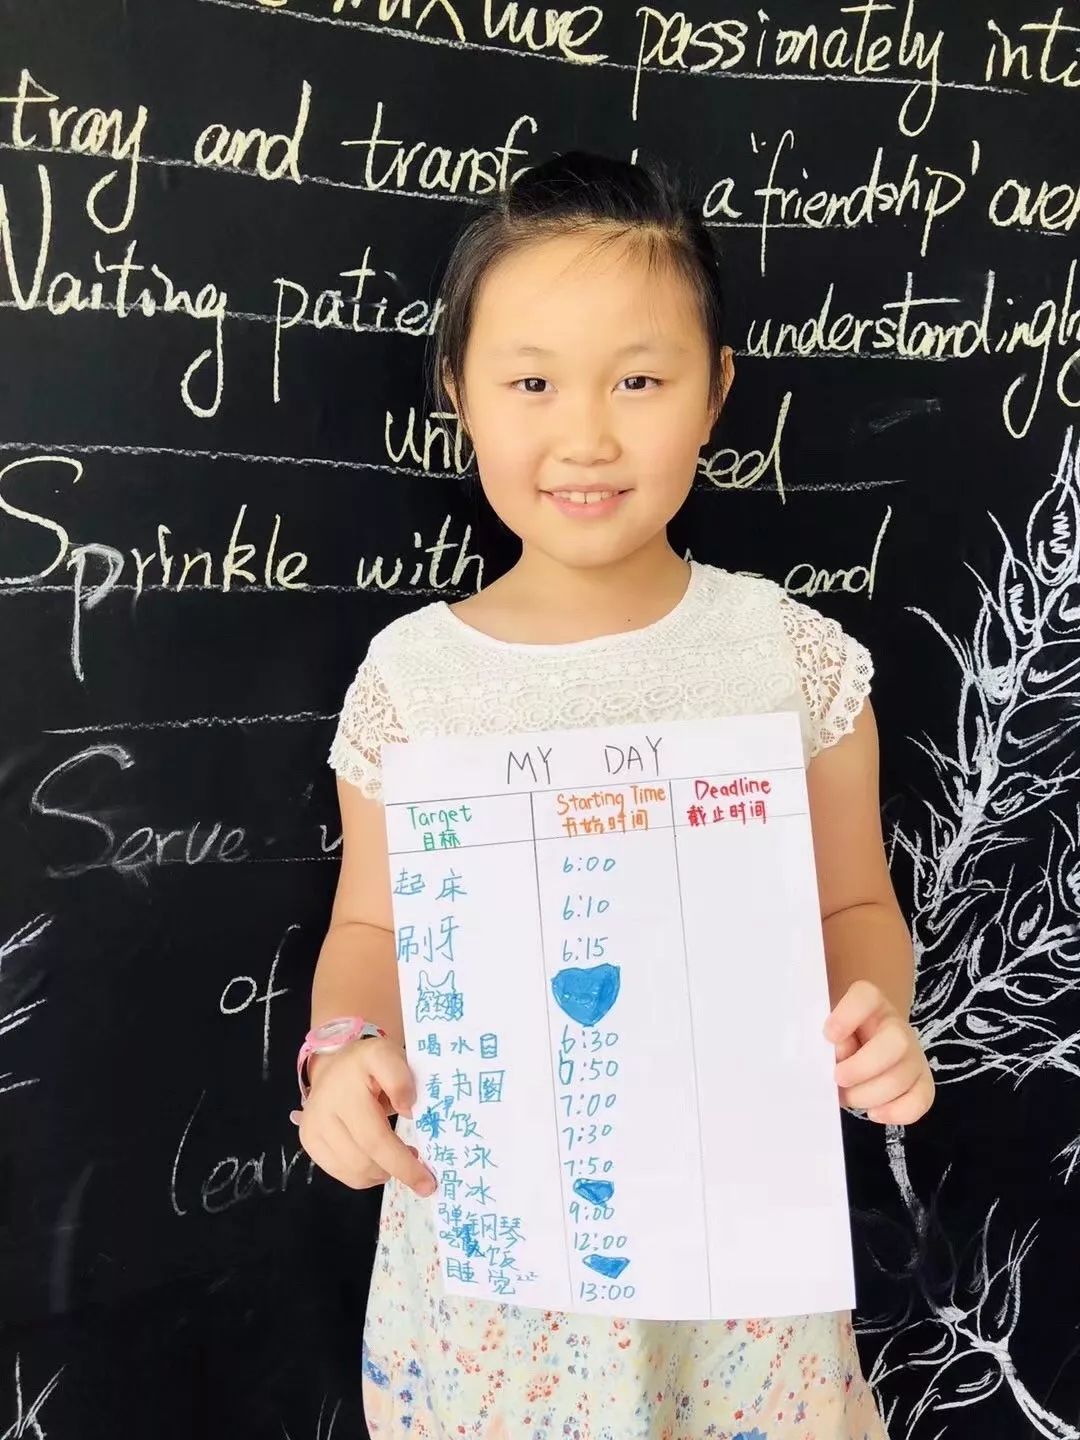 mixture passionately into
tray and transfo a 'friendship' over
Waiting patien understandingly
unt eed
Sprinkle with and
Serve.
of
learn
MY DAY
Target Starting Time Deadline
目标 开始时间 截止时间
起床 6:00
刷牙 6:10
6:15
喝水 6:30
看书 6:50
早饭 7:00
游泳 7:30
滑冰 7:50
弹钢琴 9:00
吃饭 12:00
睡觉 zzz 13:00